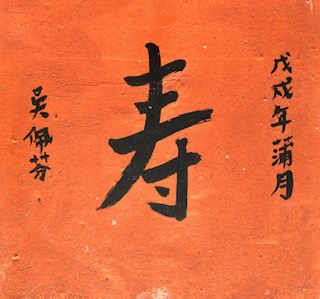 戊戌年蒲月
寿
吴佩芬